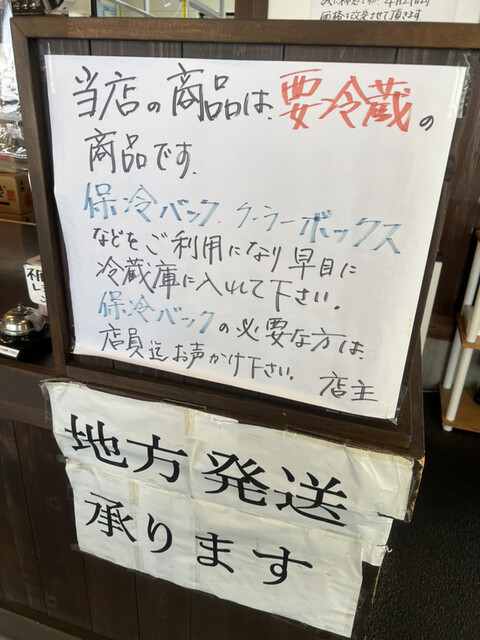 4月21日より
価格を改定させて頂きます
当店の商品は、要冷蔵の
商品です。
保冷バック、クーラーボックス
などをご利用になり早目に
冷蔵庫に入れて下さい。
保冷バックの必要な方は
店員迄お声かけ下さい。 店主
地方発送
承ります